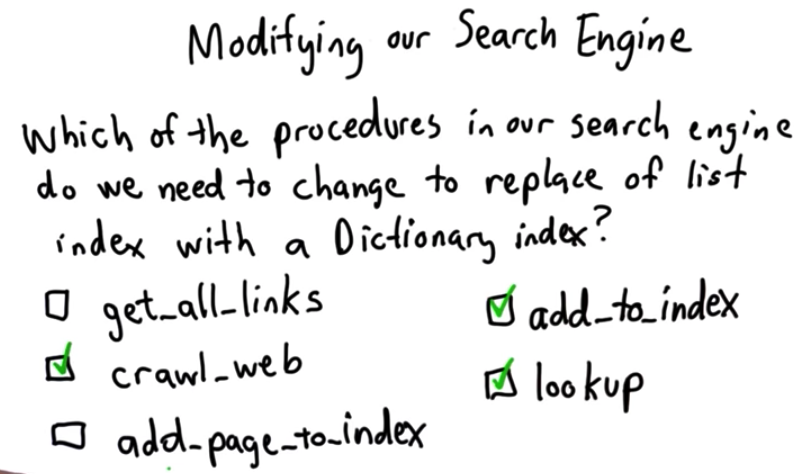 Modifying our Search Engine
Which of the procedures in our search engine
do we need to change to replace of list
index with a Dictionary index?
get_all_links
crawl_web
add_page_to_index
add_to_index
lookup